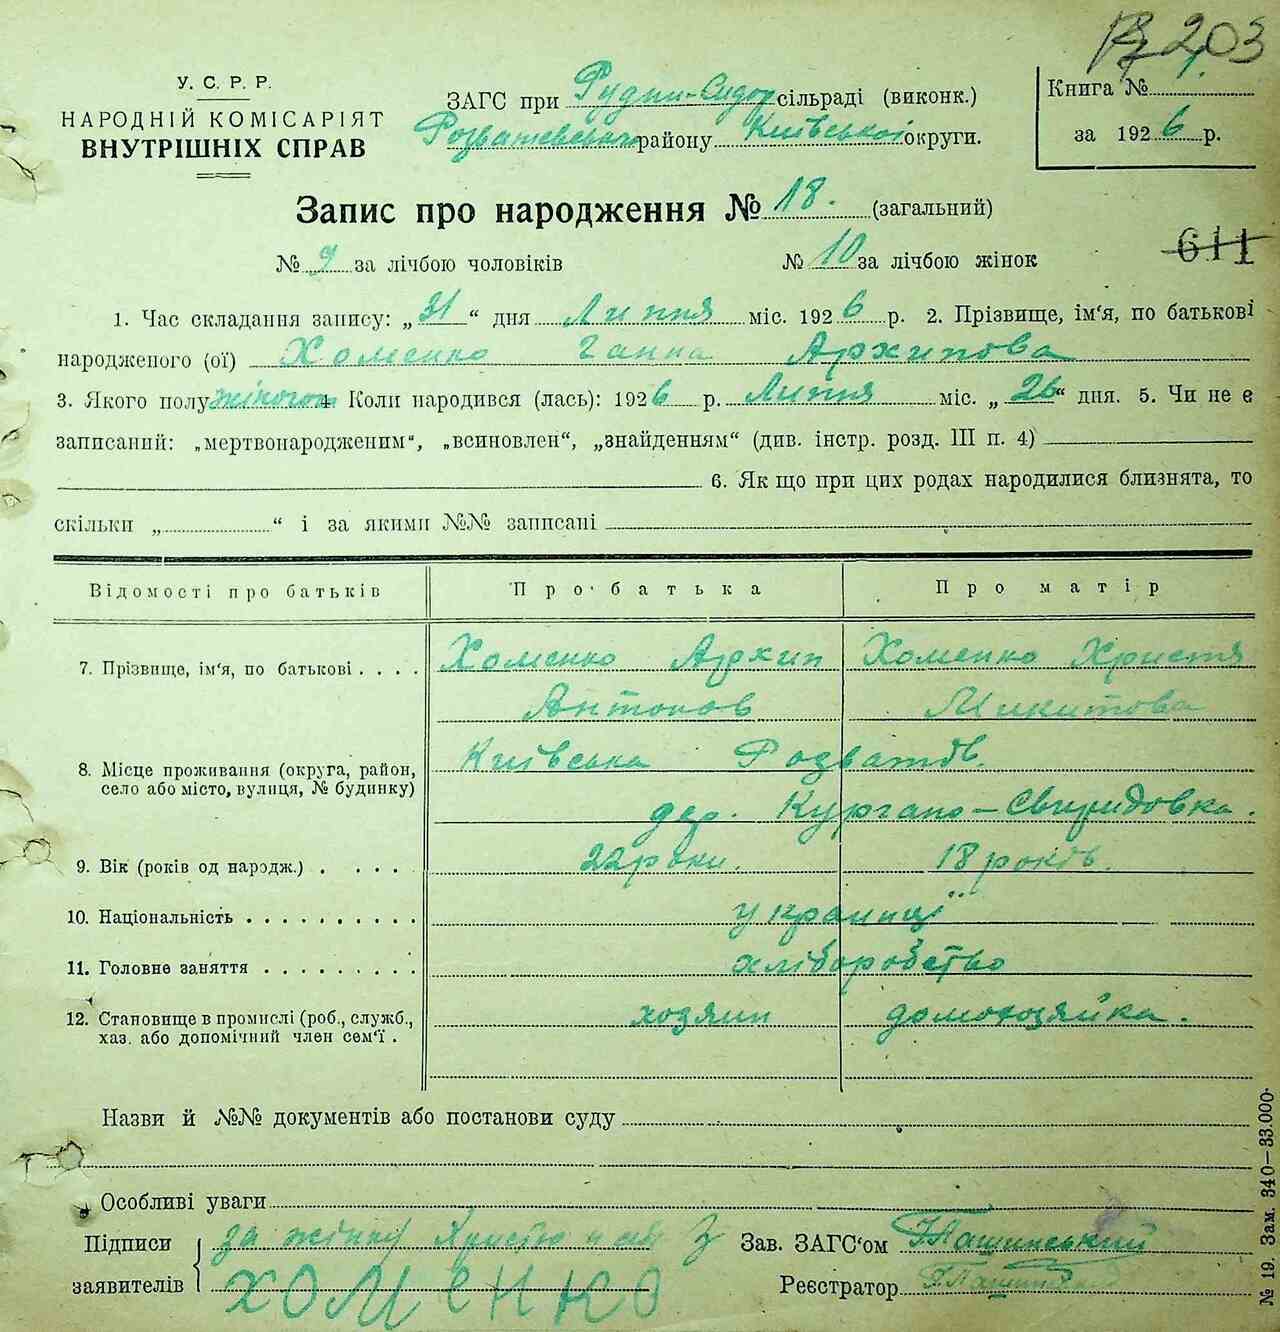 203
У. С. Р. Р.
НАРОДНІЙ КОМІСАРІЯТ
ВНУТРІШНІХ СПРАВ
ЗАГС при Рудни-Сидор сільраді (виконк.)
Розважевського району Київської округи.
Книга № 1.
за 1926 р.
Запис про народження № 18. (загальний)
№ 9 за лічбою чоловіків № 10 за лічбою жінок
611
1. Час складання запису: „31“ дня Липня міс. 1926 р. 2. Прізвище, ім'я, по батькові
народженого (ої) Хоменко Ганна Архипова
3. Якого полу жіночого 4. Коли народився (лась): 1926 р. Липня міс. „26“ дня. 5. Чи не є
записаний: „мертвонародженим“, „всиновлен“, „знайденням“ (див. інстр. розд. III п. 4)
6. Як що при цих родах народилися близнята, то
скільки „ “ і за якими №№ записані
Відомості про батьків Про батька Про матір
7. Прізвище, ім'я, по батькові . . . . Хоменко Архип Хоменко Христя
Антонов Микитова
8. Місце проживання (округа, район, Київська Розватів.
село або місто, вулиця, № будинку) дер. Кургано-Свиридовка.
9. Вік (років од народж.) . . . . . 22 роки. 18 років.
10. Національність . . . . . . . . . . українці
11. Головне заняття . . . . . . . . . хліборобство
12. Становище в промислі (роб., служб., хозяин домохозяйка.
хаз. або допомічний член сем'ї .
Назви й №№ документів або постанови суду
Особливі уваги
Підписи за жінку Христю
заявителів Хоменко
Зав. ЗАГС'ом Г Пашинський
Реєстратор Г Пашинський
№ 19. Зам. 340—33.000.